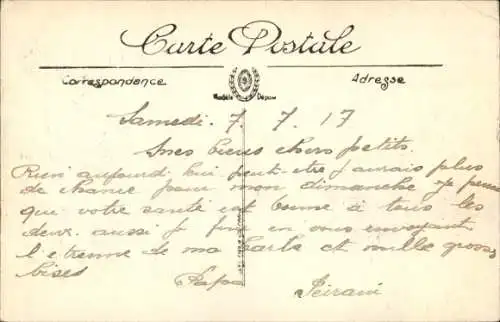 Carte Postale
Correspondance
Adresse
Modèle Déposé
Samedi. 7 7 17
Mes biens chers petits.
Rien aujourd'hui peut-etre j aurais plus
de chance pour mon dimanche Je pense
que votre santé est bonne à tous les
deux. aussi je finis en vous envoyant
l etrenne de ma carte et mille grosses
bises
Papa